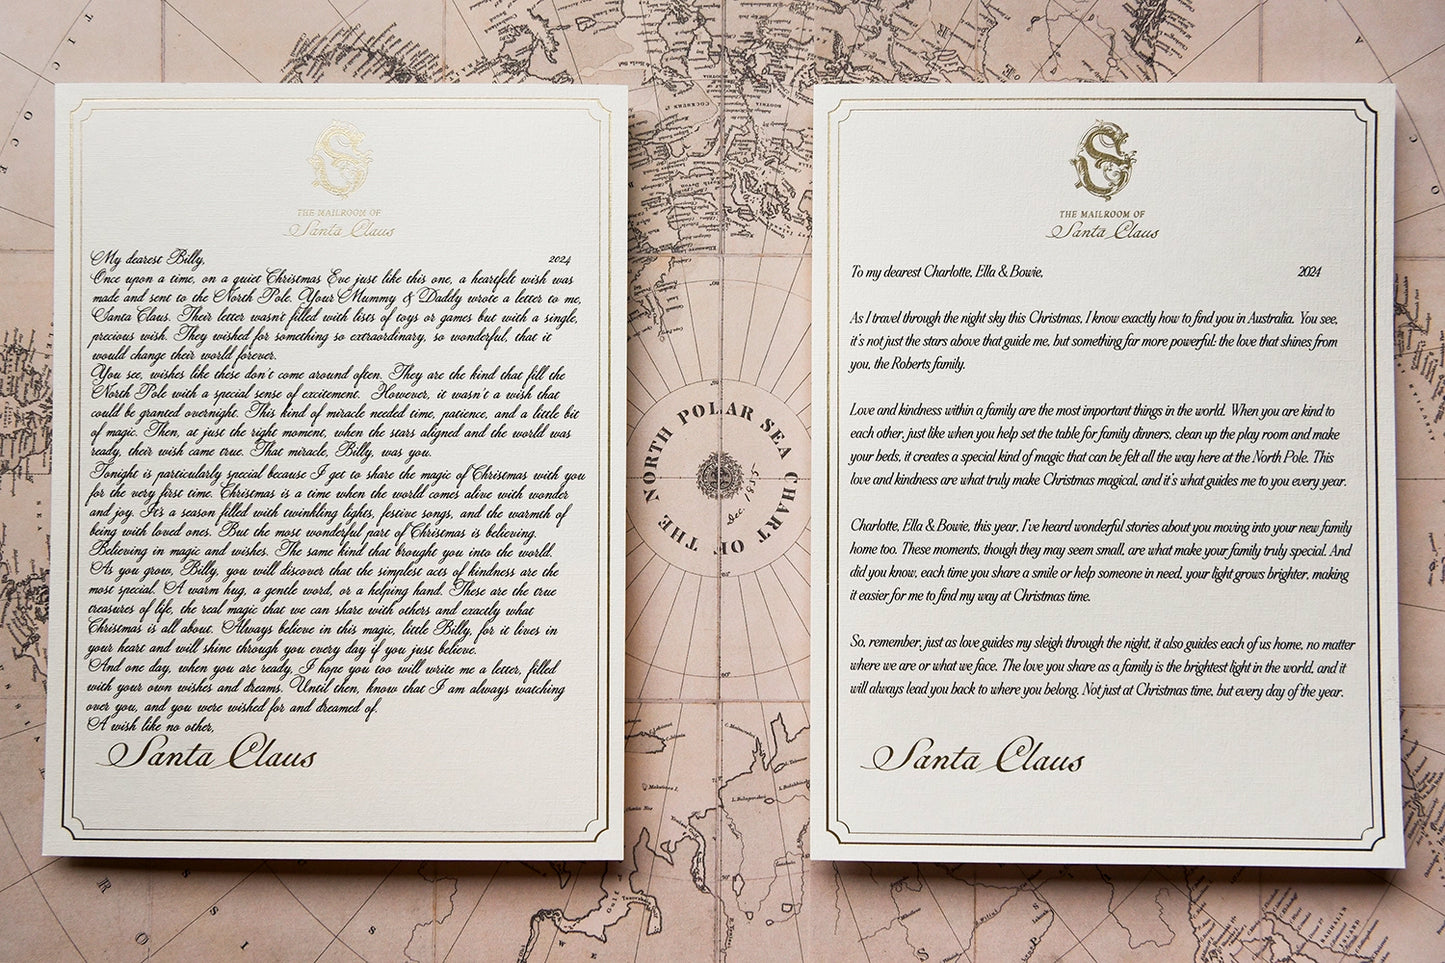 THE MAILROOM OF
Santa Claus
My dearest Billy, 2024
Once upon a time, on a quiet Christmas Eve just like this one, a heartfelt wish was
made and sent to the North Pole. Your Mummy & Daddy wrote a letter to me,
Santa Claus. Their letter wasn't filled with lists of toys or games but with a single,
precious wish. They wished for something so extraordinary, so wonderful, that it
would change their world forever.
You see, wishes like these don't come around often. They are the kind that fill the
North Pole with a special sense of excitement. However, it wasn't a wish that
could be granted overnight. This kind of miracle needed time, patience, and a little bit
of magic. Then, at just the right moment, when the stars aligned and the world was
ready, their wish came true. That miracle, Billy, was you.
Tonight is particularly special because I get to share the magic of Christmas with you
for the very first time. Christmas is a time when the world comes alive with wonder
and joy. It's a season filled with twinkling lights, festive songs, and the warmth of
being with loved ones. But the most wonderful part of Christmas is believing.
Believing in magic and wishes. The same kind that brought you into the world.
As you grow, Billy, you will discover that the simplest acts of kindness are the
most special. A warm hug, a gentle word, or a helping hand. These are the true
treasures of life, the real magic that we can share with others and exactly what
Christmas is all about. Always believe in this magic, little Billy, for it lives in
your heart and will shine through you every day if you just believe.
And one day, when you are ready, I hope you too will write me a letter, filled
with your own wishes and dreams. Until then, know that I am always watching
over you, and you were wished for and dreamed of.
A wish like no other,
Santa Claus
THE MAILROOM OF
Santa Claus
To my dearest Charlotte, Ella & Bowie, 2024
As I travel through the night sky this Christmas, I know exactly how to find you in Australia. You see,
it's not just the stars above that guide me, but something far more powerful: the love that shines from
you, the Roberts family.
Love and kindness within a family are the most important things in the world. When you are kind to
each other, just like when you help set the table for family dinners, clean up the play room and make
your beds, it creates a special kind of magic that can be felt all the way here at the North Pole. This
love and kindness are what truly make Christmas magical, and it's what guides me to you every year.
Charlotte, Ella & Bowie, this year, I've heard wonderful stories about you moving into your new family
home too. These moments, though they may seem small, are what make your family truly special. And
did you know, each time you share a smile or help someone in need, your light grows brighter, making
it easier for me to find my way at Christmas time.
So, remember, just as love guides my sleigh through the night, it also guides each of us home, no matter
where we are or what we face. The love you share as a family is the brightest light in the world, and it
will always lead you back to where you belong. Not just at Christmas time, but every day of the year.
Santa Claus
CHART OF THE NORTH POLAR SEA
Dec. 1855